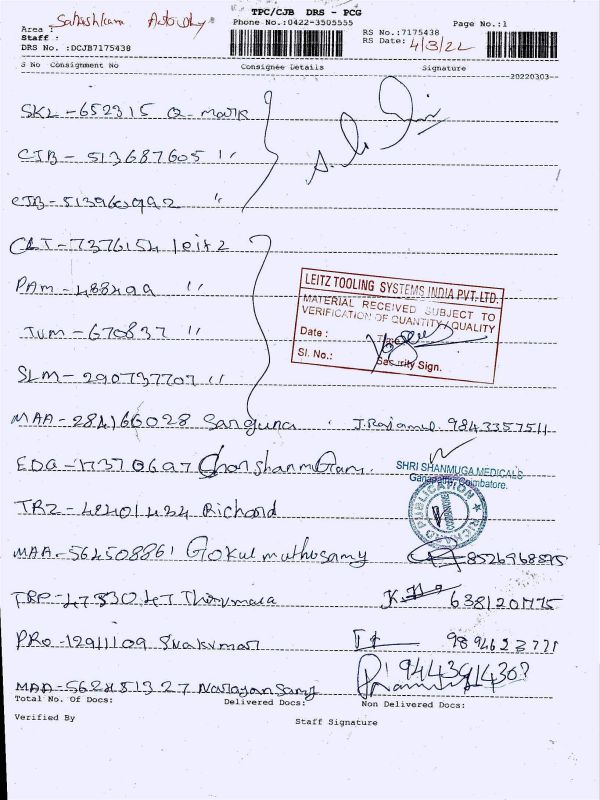 TPC/CJB DRS - PCG
Area :
Phone No.:0422-3505555
Page No.:1
Staff :
RS No.:7175438
DRS No. :DCJB7175438
RS Date: 4/3/22
S No Consignment No Consignee Details Signature
20220303
SKL-652315 Q-mark
CJB-513687605 "
CJB-513960992 "
CLT-7376154 leitz
PAM-488499 "
JUM-670837 "
SLM-290737707 "
LEITZ TOOLING SYSTEMS INDIA PVT. LTD.
MATERIAL RECEIVED SUBJECT TO
VERIFICATION OF QUANTITY/QUALITY
Date : Time
Sl. No.: Security Sign.
MAA-284166028 Sanguna 9843357511
EDG
SHRI SHANMUGA MEDICALS
Ganapathy, Coimbatore.
RICHARD PUBLICATION
TRZ-48401424 Richard
MAA-564508861 Gokul muthusamy 8526968895
TRP-4733047
PRO-12911109 Sivakumar
MAA-562481327 Narayansamy
Total No. Of Docs: Delivered Docs: Non Delivered Docs:
Verified By Staff Signature